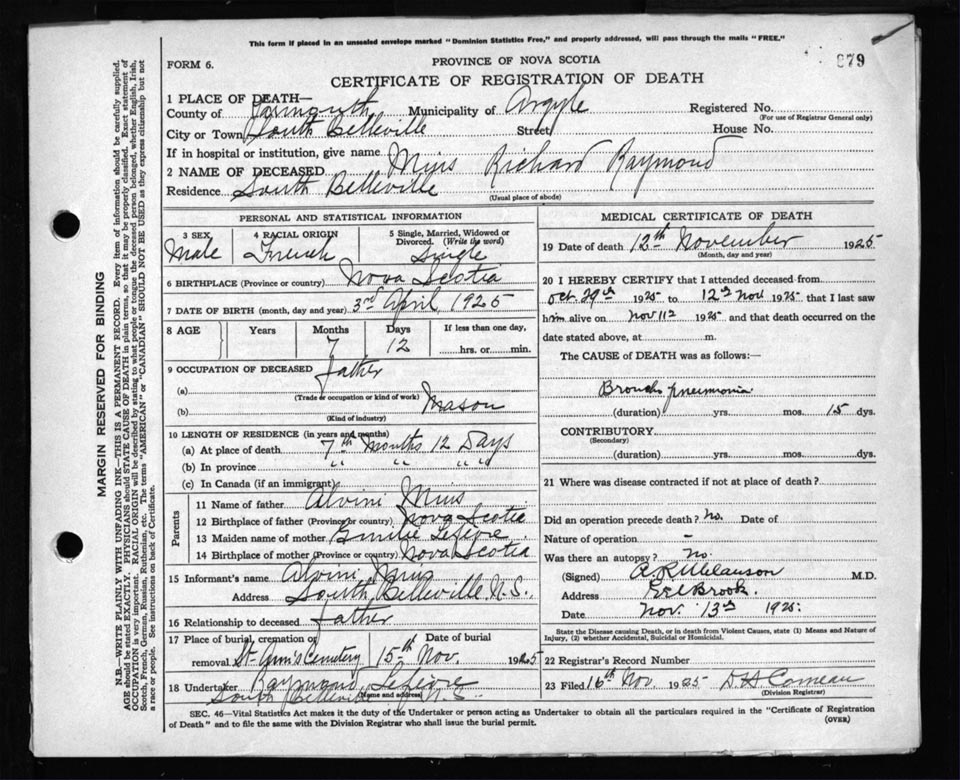 This form if placed in an unsealed envelope marked "Dominion Statistics Free," and properly addressed, will pass through the mails "FREE."
FORM 6.
PROVINCE OF NOVA SCOTIA
879
CERTIFICATE OF REGISTRATION OF DEATH
1 PLACE OF DEATH—
County of Yarmouth Municipality of Argyle Registered No.
(For use of Registrar General only)
City or Town South Belleville Street House No.
If in hospital or institution, give name
2 NAME OF DECEASED Mius Richard Raymond
Residence South Belleville
(Usual place of abode)
PERSONAL AND STATISTICAL INFORMATION
3 SEX 4 RACIAL ORIGIN 5 Single, Married, Widowed or Divorced. (Write the word)
Male French Single
6 BIRTHPLACE (Province or country) Nova Scotia
7 DATE OF BIRTH (month, day and year) 3rd April, 1925
8 AGE Years Months Days If less than one day,
7 12 hrs. or min.
9 OCCUPATION OF DECEASED Father
(a)
(Trade or occupation or kind of work)
(b) Mason
(Kind of industry)
10 LENGTH OF RESIDENCE (in years and months)
(a) At place of death 7th Months 12 Days
(b) In province " " "
(c) In Canada (if an immigrant)
Parents
11 Name of father Alvini Mius
12 Birthplace of father (Province or country) Nova Scotia
13 Maiden name of mother Emilie Lefevre
14 Birthplace of mother (Province or country) Nova Scotia
15 Informant's name Alvini Mius
Address South Belleville N.S.
16 Relationship to deceased Father
17 Place of burial, cremation or removal Date of burial
St. Ann's Cemetery 15th Nov. 1925
18 Undertaker Raymond Lefevre
South Belleville N.S.
(Name and address)
MEDICAL CERTIFICATE OF DEATH
19 Date of death 12th November 1925
(Month, day and year)
20 I HEREBY CERTIFY that I attended deceased from
Oct 29th 1925 to 12th Nov 1925 that I last saw
him alive on Nov 11th 1925 and that death occurred on
date stated above, at m.
The CAUSE of DEATH was as follows:—
Broncho pneumonia
(duration) yrs. mos. 15 dys.
CONTRIBUTORY
(Secondary)
(duration) yrs. mos. dys.
21 Where was disease contracted if not at place of death?
Did an operation precede death? No. Date of
Nature of operation -
Was there an autopsy? No.
(Signed) M.D.
Address Eel Brook.
Date Nov. 13th 1925.
State the Disease causing Death, or in death from Violent Causes, state (1) Means and Nature of
Injury, (2) whether Accidental, Suicidal or Homicidal.
22 Registrar's Record Number
23 Filed 16th Nov. 1925 D. H. Comeau
(Division Registrar)
SEC. 46—Vital Statistics Act makes it the duty of the Undertaker or person acting as Undertaker to obtain all the particulars required in the "Certificate of Registration
of Death" and to file the same with the Division Registrar who shall issue the burial permit.
(OVER)
MARGIN RESERVED FOR BINDING
N.B.—WRITE PLAINLY WITH UNFADING INK—THIS IS A PERMANENT RECORD. Every item of information should be carefully supplied.
AGE should be stated EXACTLY. PHYSICIANS should STATE CAUSE OF DEATH in plain terms, so that it may be properly classified. Exact statement of
OCCUPATION is very important. RACIAL ORIGIN will be described by stating to what people or tongue the deceased person belonged, whether English, Irish,
Scotch, French, German, Russian, Ruthenian, etc. The terms "AMERICAN" or "CANADIAN" SHOULD NOT BE USED as they express citizenship but not
a race or people. See instructions on back of Certificate.